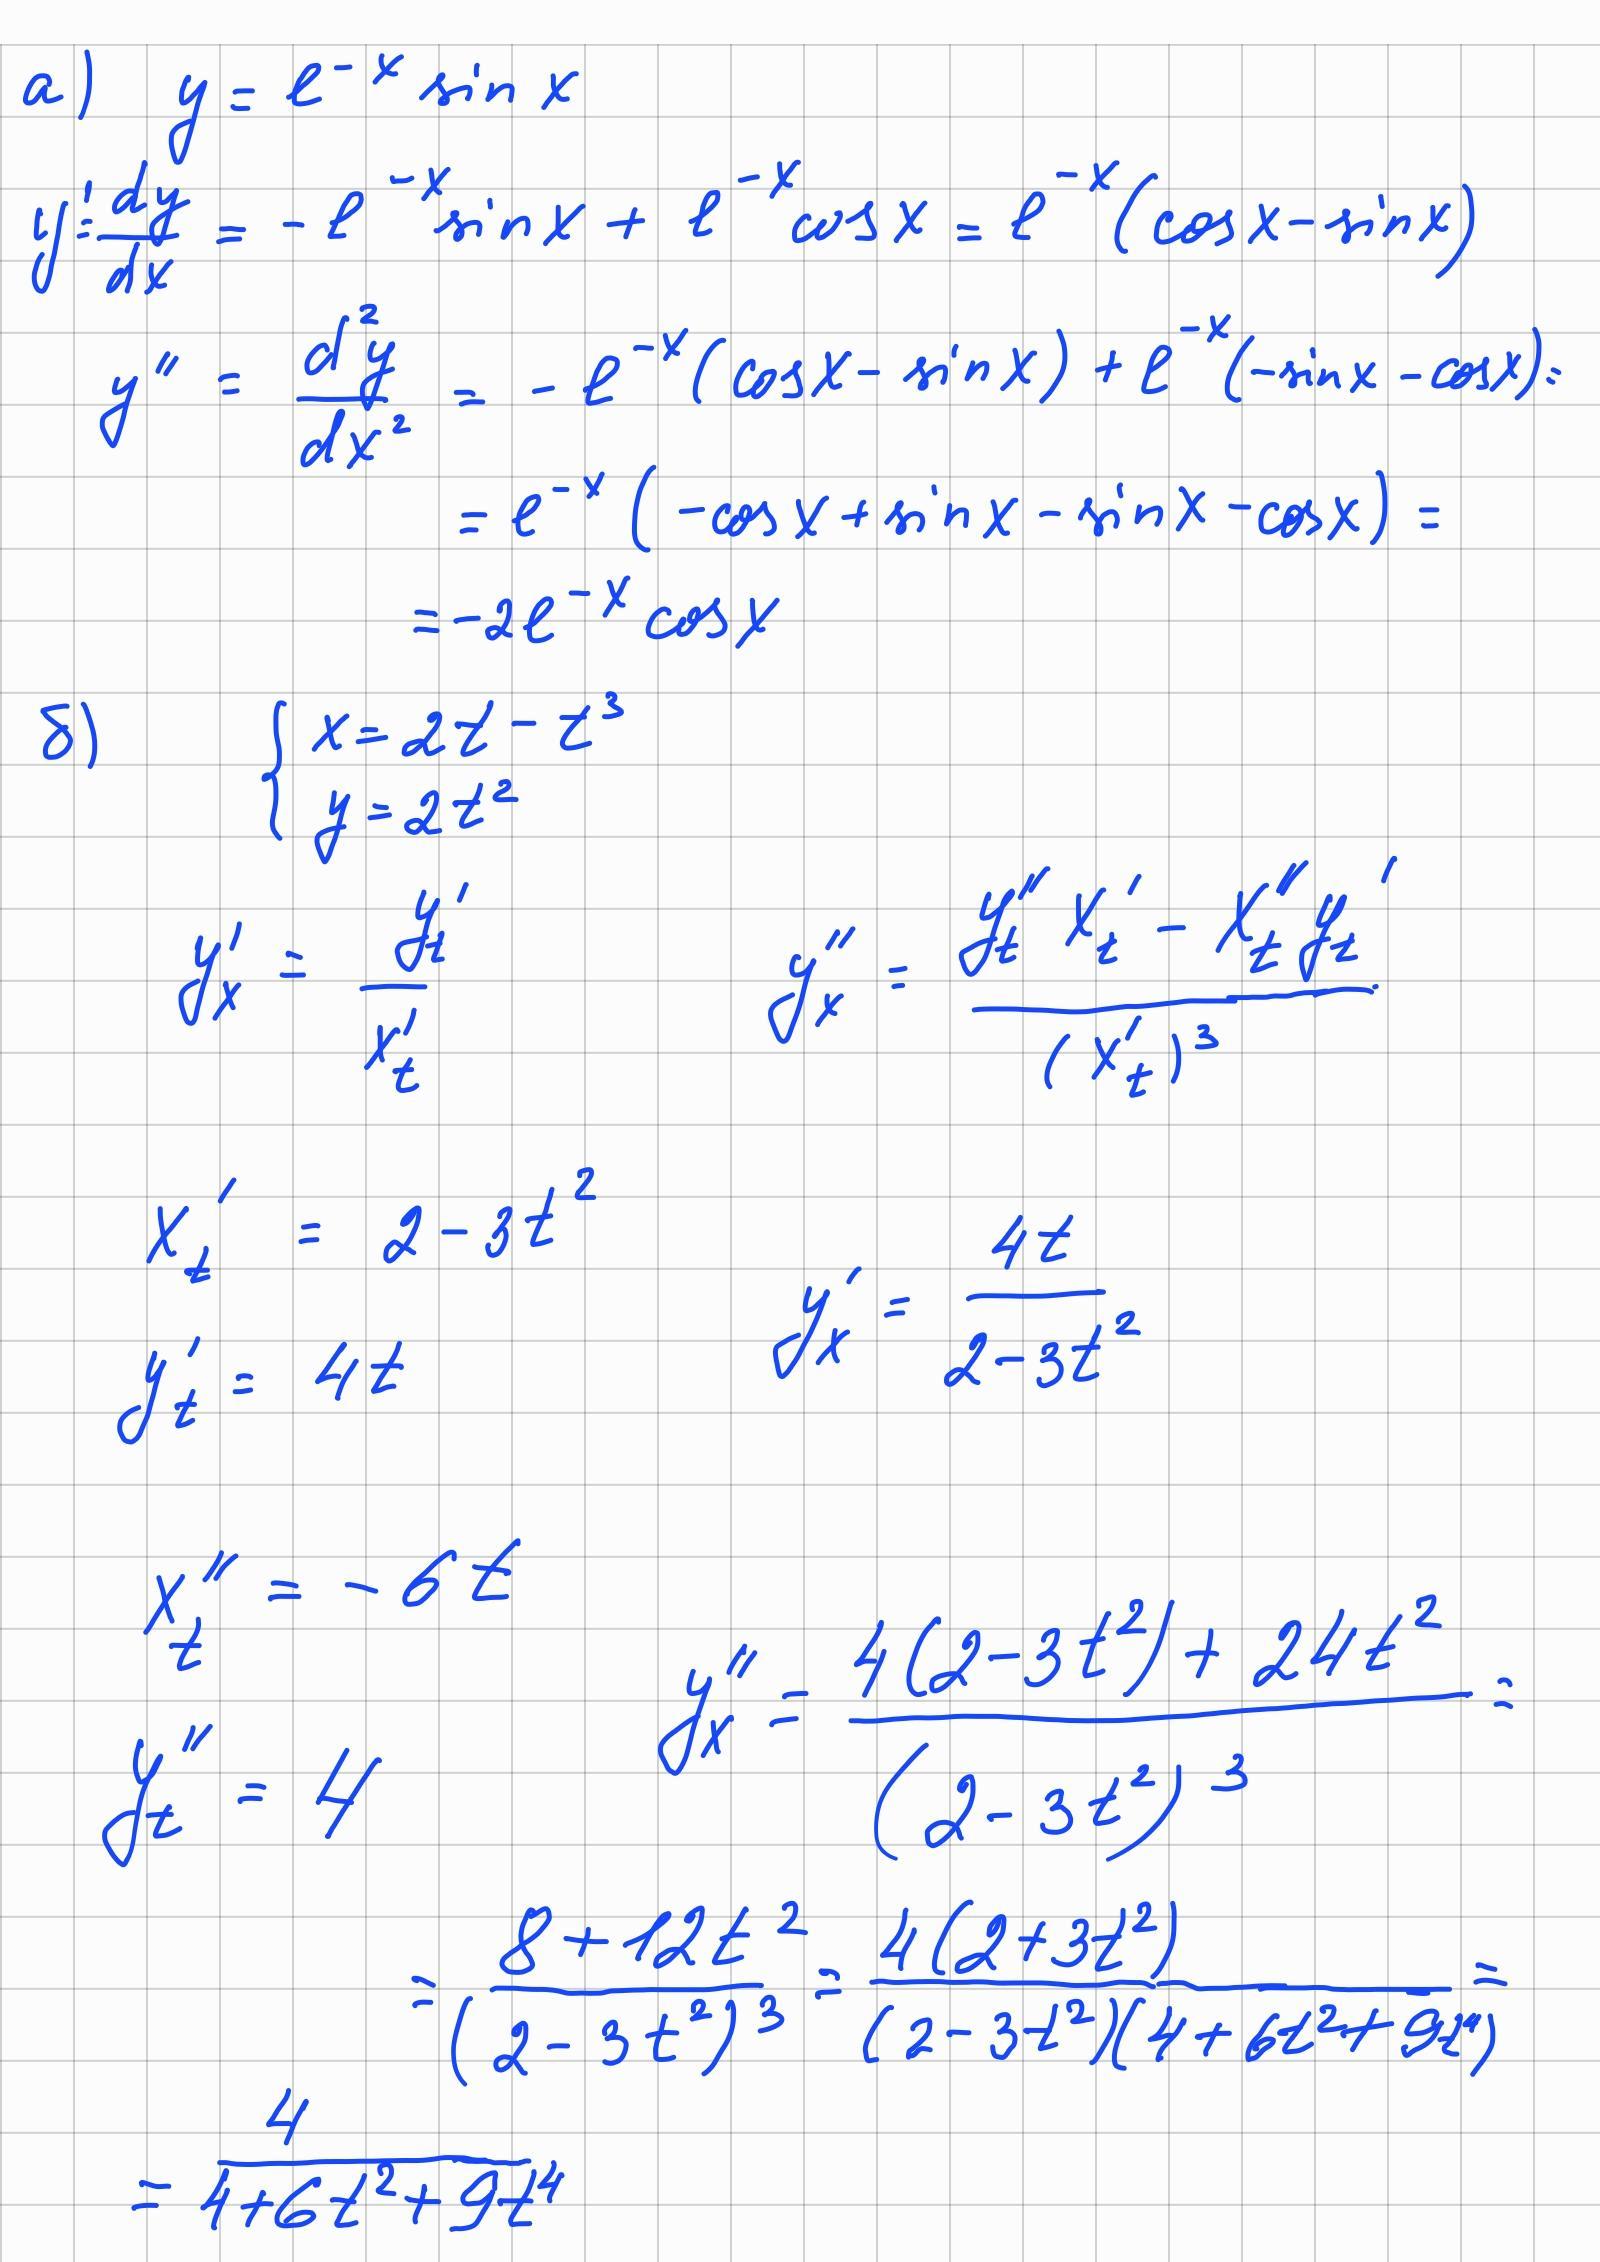 а) y = e^{-x} sin x
y' = dy/dx = -e^{-x} sin x + e^{-x} cos x = e^{-x}(cos x - sin x)
y'' = d²y/dx² = -e^{-x}(cos x - sin x) + e^{-x}(-sin x - cos x) =
= e^{-x}(-cos x + sin x - sin x - cos x) =
= -2e^{-x} cos x
б) { x = 2t - t³
y = 2t²
y'_x = y'_t / x'_t
y''_x = (y''_t x'_t - x''_t y'_t) / (x'_t)³
x'_t = 2 - 3t²
y'_t = 4t
y'_x = 4t / (2 - 3t²)
x''_t = -6t
y''_t = 4
y''_x = (4(2 - 3t²) + 24t²) / (2 - 3t²)³ =
= (8 + 12t²) / (2 - 3t²)³ = 4(2 + 3t²) / ((2 - 3t²)(4 + 6t² + 9t⁴)) =
= 4 / (4 + 6t² + 9t⁴)